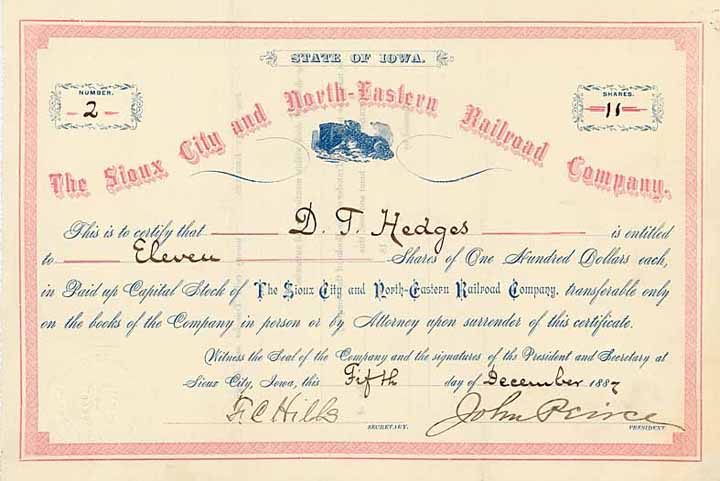 STATE OF IOWA.
NUMBER.
2
SHARES.
11
The Sioux City and North-Eastern Railroad Company.
This is to certify that D. T. Hedges is entitled
to Eleven Shares of One Hundred Dollars each,
in Paid up Capital Stock of The Sioux City and North-Eastern Railroad Company, transferable only
on the books of the Company in person or by Attorney upon surrender of this certificate.
Witness the Seal of the Company and the signatures of the President and Secretary at
Sioux City, Iowa, this Fifth day of December 1887
F. C. Hills John Peirce
SECRETARY. PRESIDENT